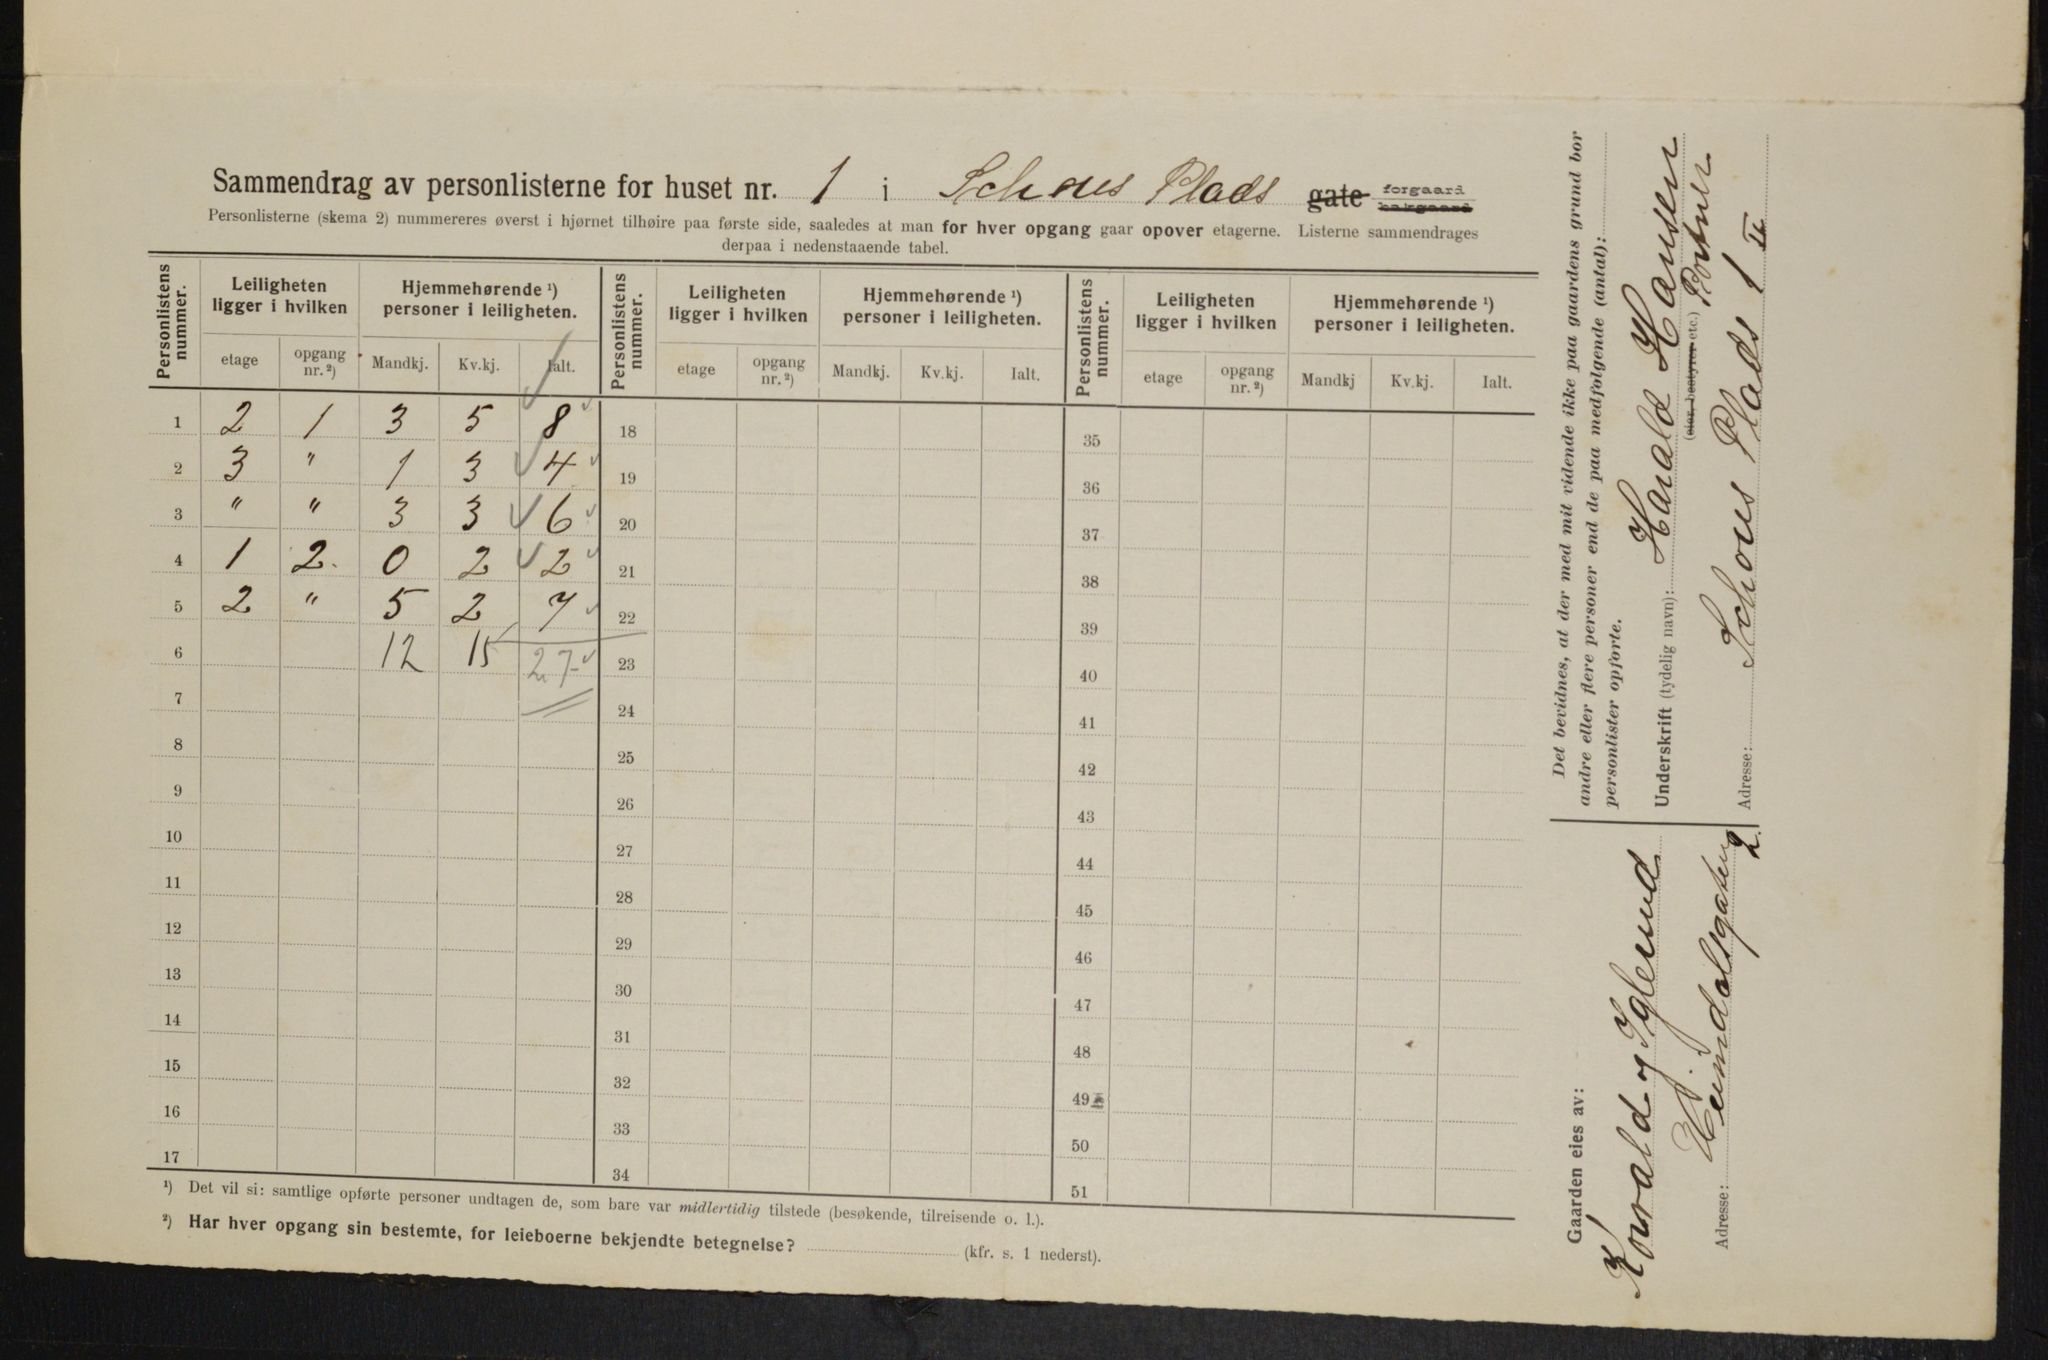 Sammendrag av personlisterne for huset nr. 1 i Schous Plads gate forgaard bakgaard
Personlisterne (skema 2) nummereres øverst i hjørnet tilhøire paa første side, saaledes at man for hver opgang gaar opover etagerne. Listerne sammendrages
derpaa i nedenstaaende tabel.
Personlistens nummer. Leiligheten ligger i hvilken Hjemmehørende ¹) personer i leiligheten. Personlistens nummer. Leiligheten ligger i hvilken Hjemmehørende ¹) personer i leiligheten. Personlistens nummer. Leiligheten ligger i hvilken Hjemmehørende ¹) personer i leiligheten.
etage opgang nr. ²) Mandkj. Kv.kj. Ialt. etage opgang nr. ²) Mandkj. Kv.kj. Ialt. etage opgang nr. ²) Mandkj Kv.kj. Ialt.
1 2 1 3 5 8 18 35
2 3 " 1 3 4 19 36
3 " " 3 3 6 20 37
4 1 2. 0 2 2 21 38
5 2 " 5 2 7 22 39
6 12 15 27 23 40
7 24 41
8 25 42
9 26 43
10 27 44
11 28 45
12 29 46
13 30 47
14 31 48
15 32 49
16 33 50
17 34 51
¹) Det vil si: samtlige opførte personer undtagen de, som bare var midlertidig tilstede (besøkende, tilreisende o. l.).
²) Har hver opgang sin bestemte, for leieboerne bekjendte betegnelse? (kfr. s. 1 nederst).
Det bevidnes, at der med mit vidende ikke paa gaardens grund bor
andre eller flere personer end de paa medfølgende (antal):
personlister opførte.
Underskrift (tydelig navn): Harald Hansen
(eier, bestyrer etc.) Portner
Adresse: Schous Plads 1 II
Gaarden eies av:
og
Adresse: Heimdalsgaten 2.